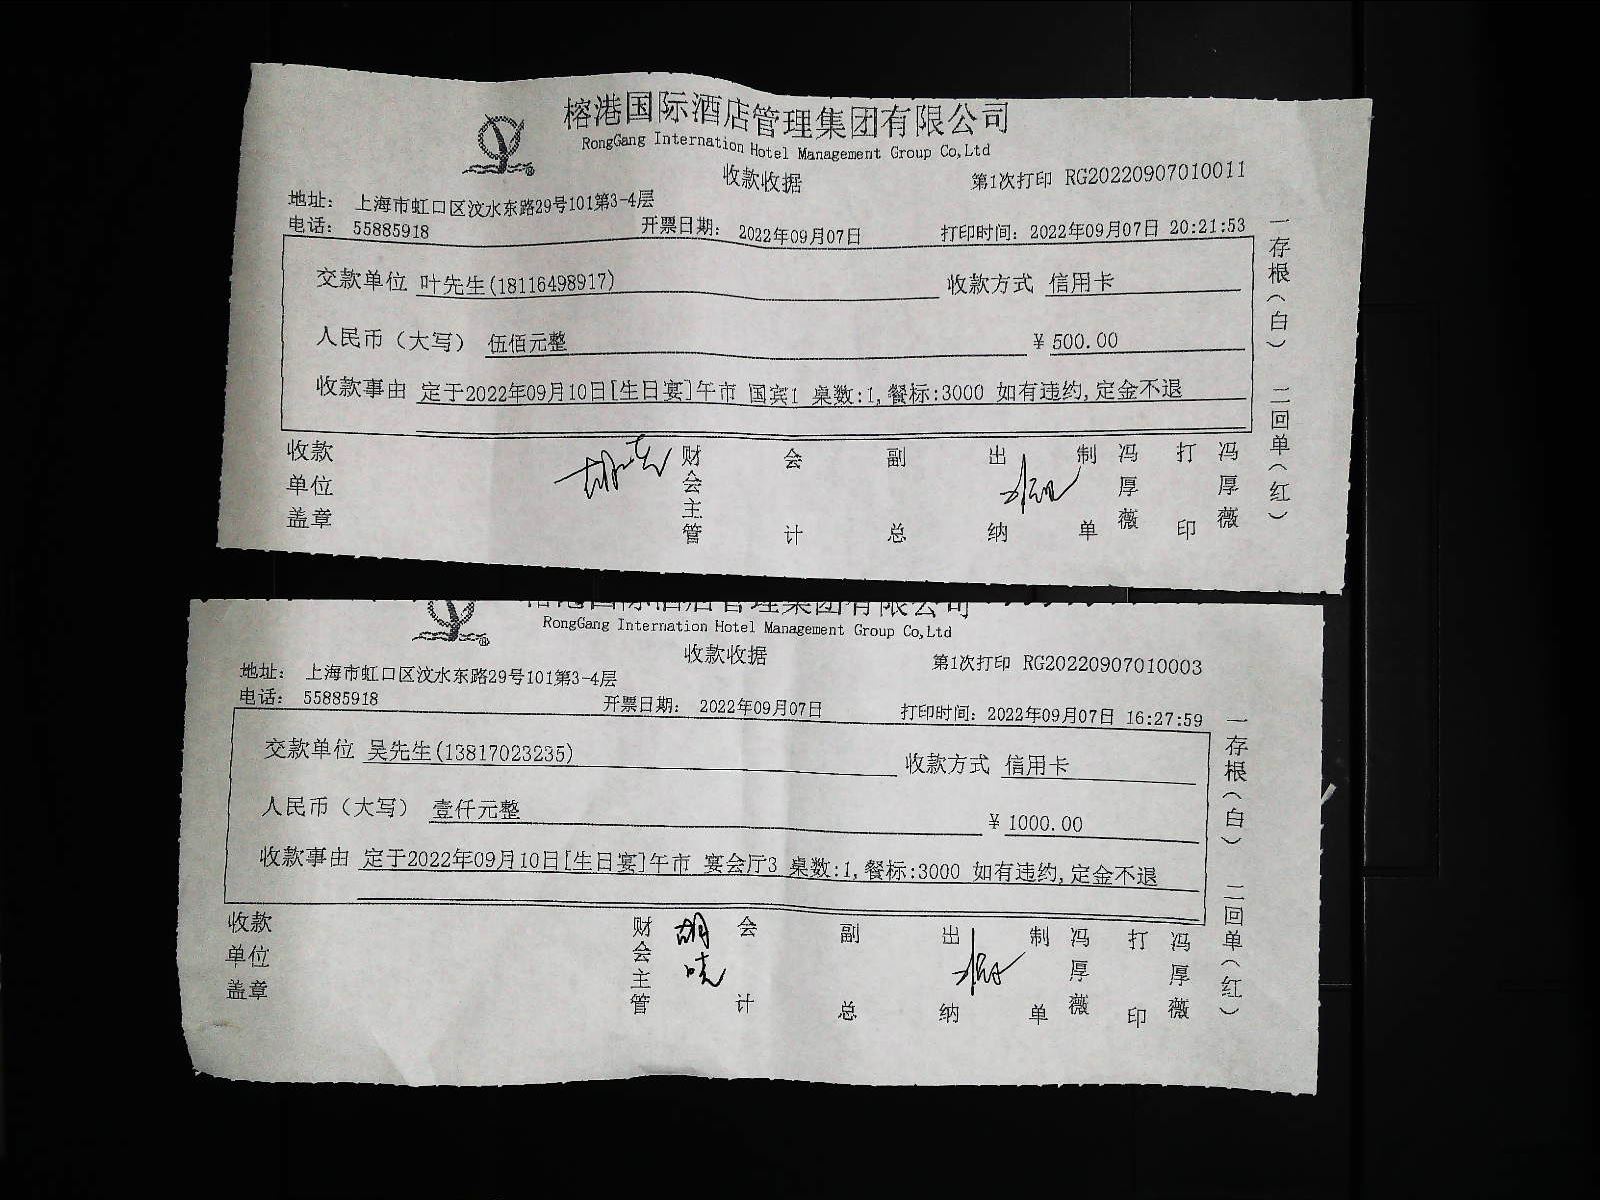 榕港国际酒店管理集团有限公司
RongGang Internation Hotel Management Group Co,Ltd
收款收据
第1次打印 RG20220907010011
地址： 上海市虹口区汶水东路29号101第3-4层
电话： 55885918 开票日期： 2022年09月07日 打印时间：2022年09月07日 20:21:53
交款单位 叶先生(18116498917) 收款方式 信用卡
人民币（大写） 伍佰元整 ￥ 500.00
收款事由 定于2022年09月10日[生日宴]午市 国宾1 桌数:1,餐标:3000 如有违约,定金不退
收款单位盖章 财会主管 会计 副总 出纳 制单 冯厚薇 打印 冯厚薇
一存根（白） 二回单（红）
榕港国际酒店管理集团有限公司
RongGang Internation Hotel Management Group Co,Ltd
收款收据
第1次打印 RG20220907010003
地址： 上海市虹口区汶水东路29号101第3-4层
电话： 55885918 开票日期： 2022年09月07日 打印时间：2022年09月07日 16:27:59
交款单位 吴先生(13817023235) 收款方式 信用卡
人民币（大写） 壹仟元整 ￥ 1000.00
收款事由 定于2022年09月10日[生日宴]午市 宴会厅3 桌数:1,餐标:3000 如有违约,定金不退
收款单位盖章 财会主管 会计 副总 出纳 制单 冯厚薇 打印 冯厚薇
一存根（白） 二回单（红）